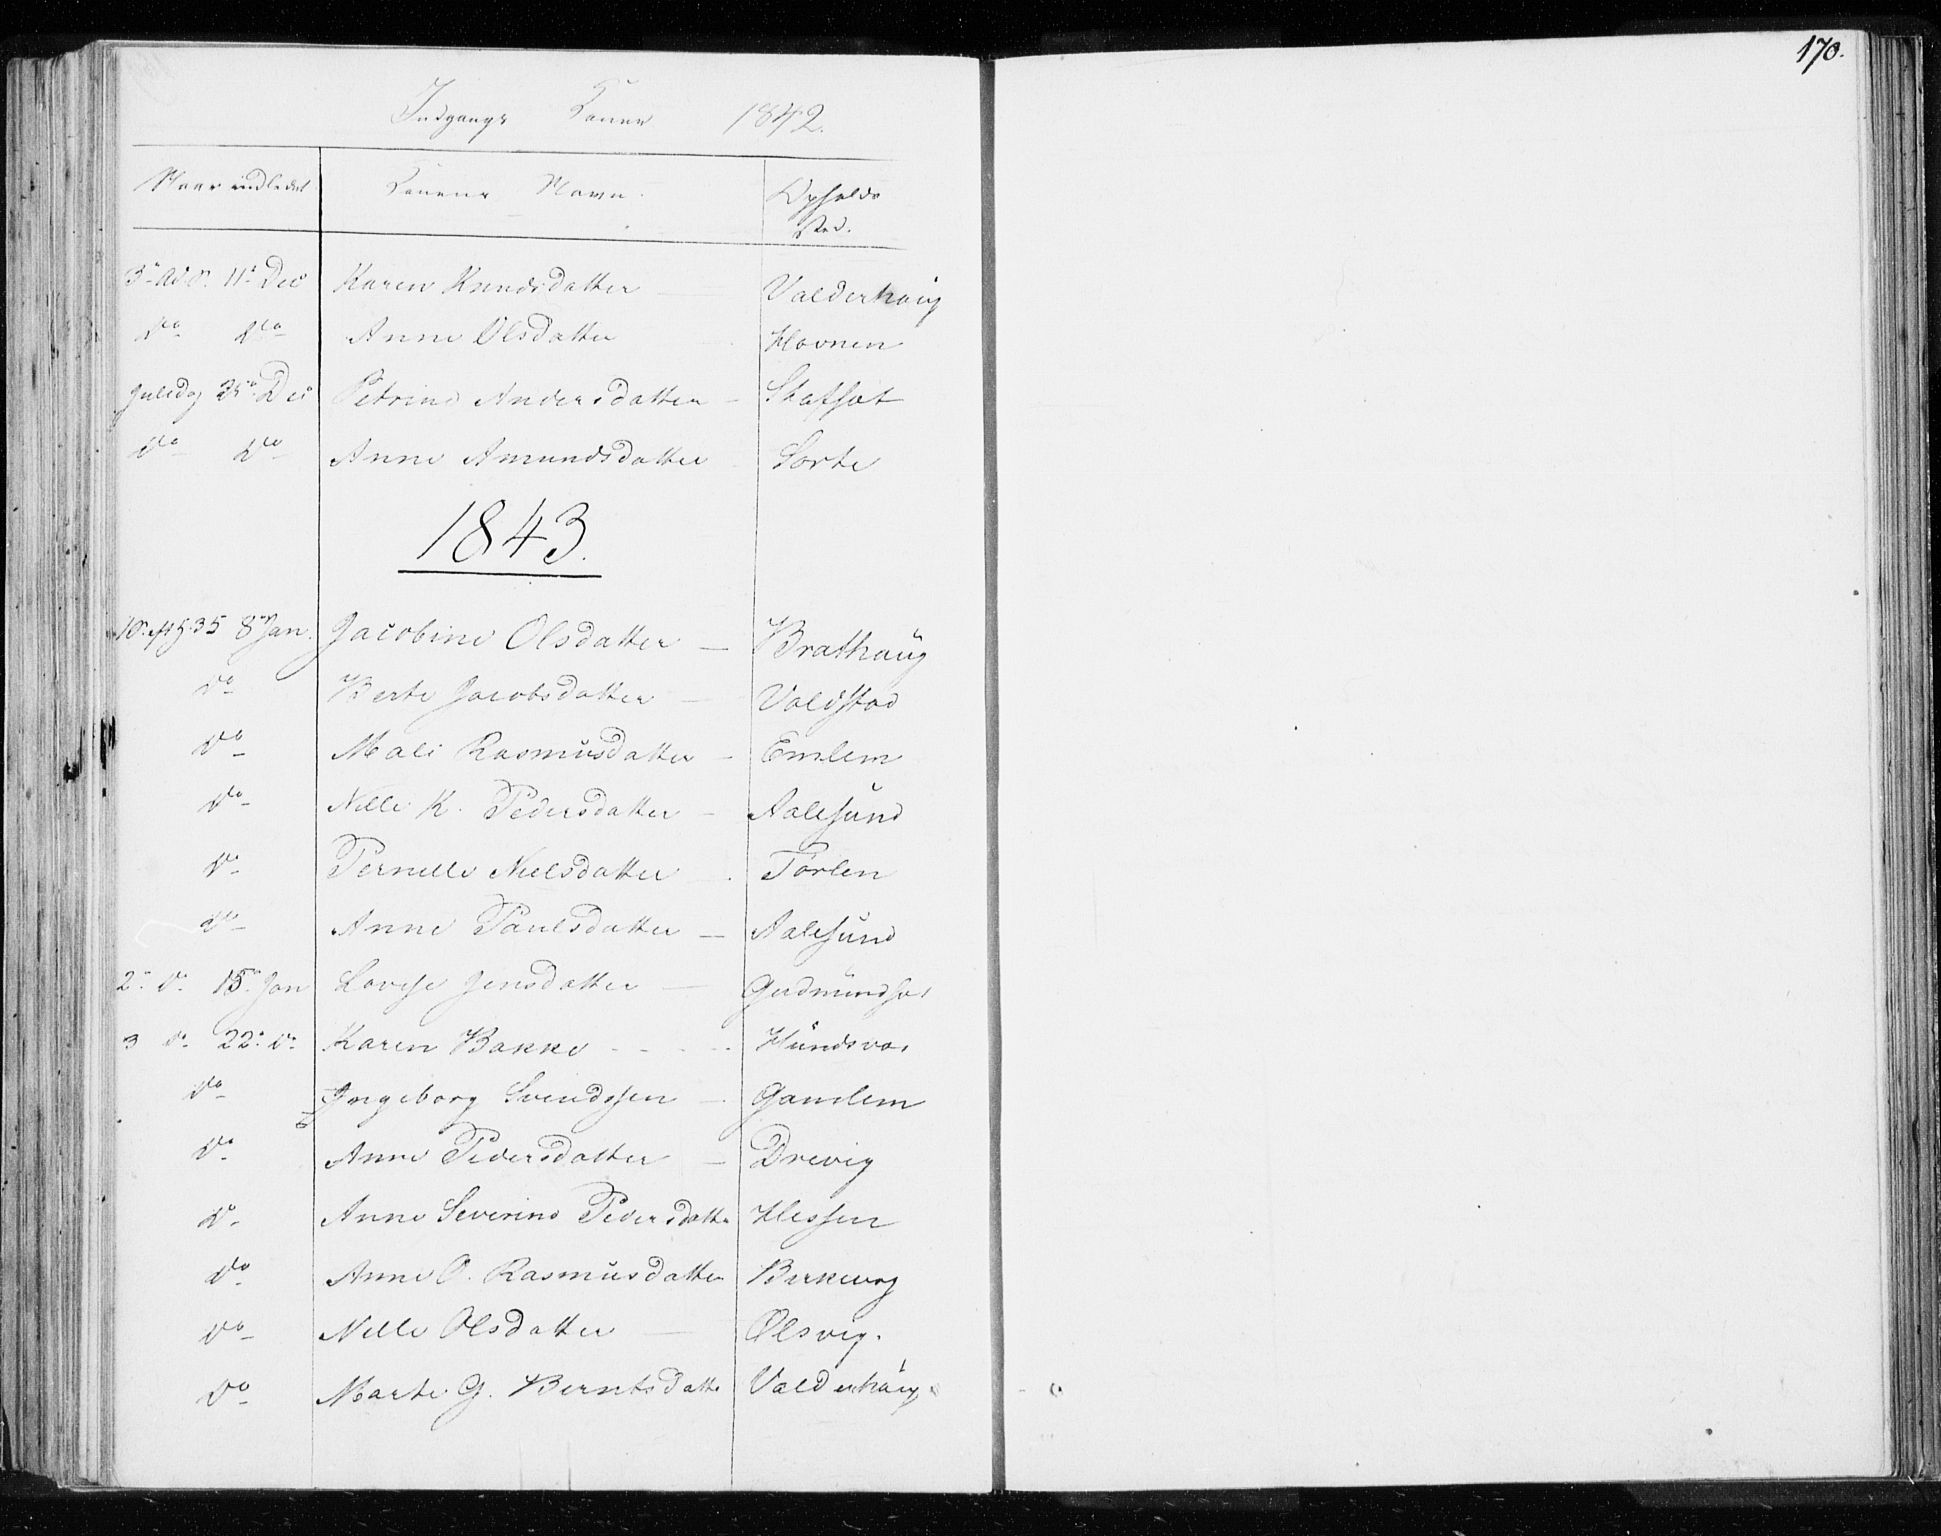 170.
Indgangs Koner 1842.
Naar indledet Konens Navn. Opholds
sted.
3die Ad. S. 11te Dec Karen Knudsdatter Valderhoug
do do Anne Olsdatter Hovnen
Juledag 25de Dec Petrine Andersdatter Skafset
do do Anne Amundsdatter Sorte
1843.
1 S. eft h. 3 K 8de Jan. Jacobine Olsdatter Brathaug
do Berte Jacobsdatter Voldstad
do Mali Rasmusdatter Emlem
do Nille K. Pedersdatter Aalesund
do Pernille Nielsdatter Torlen
do Anne Paulsdatter Aalesund
2. do 15de Jan Lovise Jensdatter Gudmundset
3 do 22de do Karen Bakke Hundsvær
do Ingeborg Svendssen Gamlem
do Anne Pedersdatter Drevig
do Anne Severine Pedersdatter Hessen
do Anne O. Rasmusdatter Birkevog
do Nille Olsdatter Olsvig.
do Marte G. Berntsdatter Valderhaug